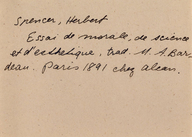 Spencer, Herbert
Essai de morale, de science
et d'esthétique, trad. M. A. Bur-
deau. Paris 1891 chez Alcan.